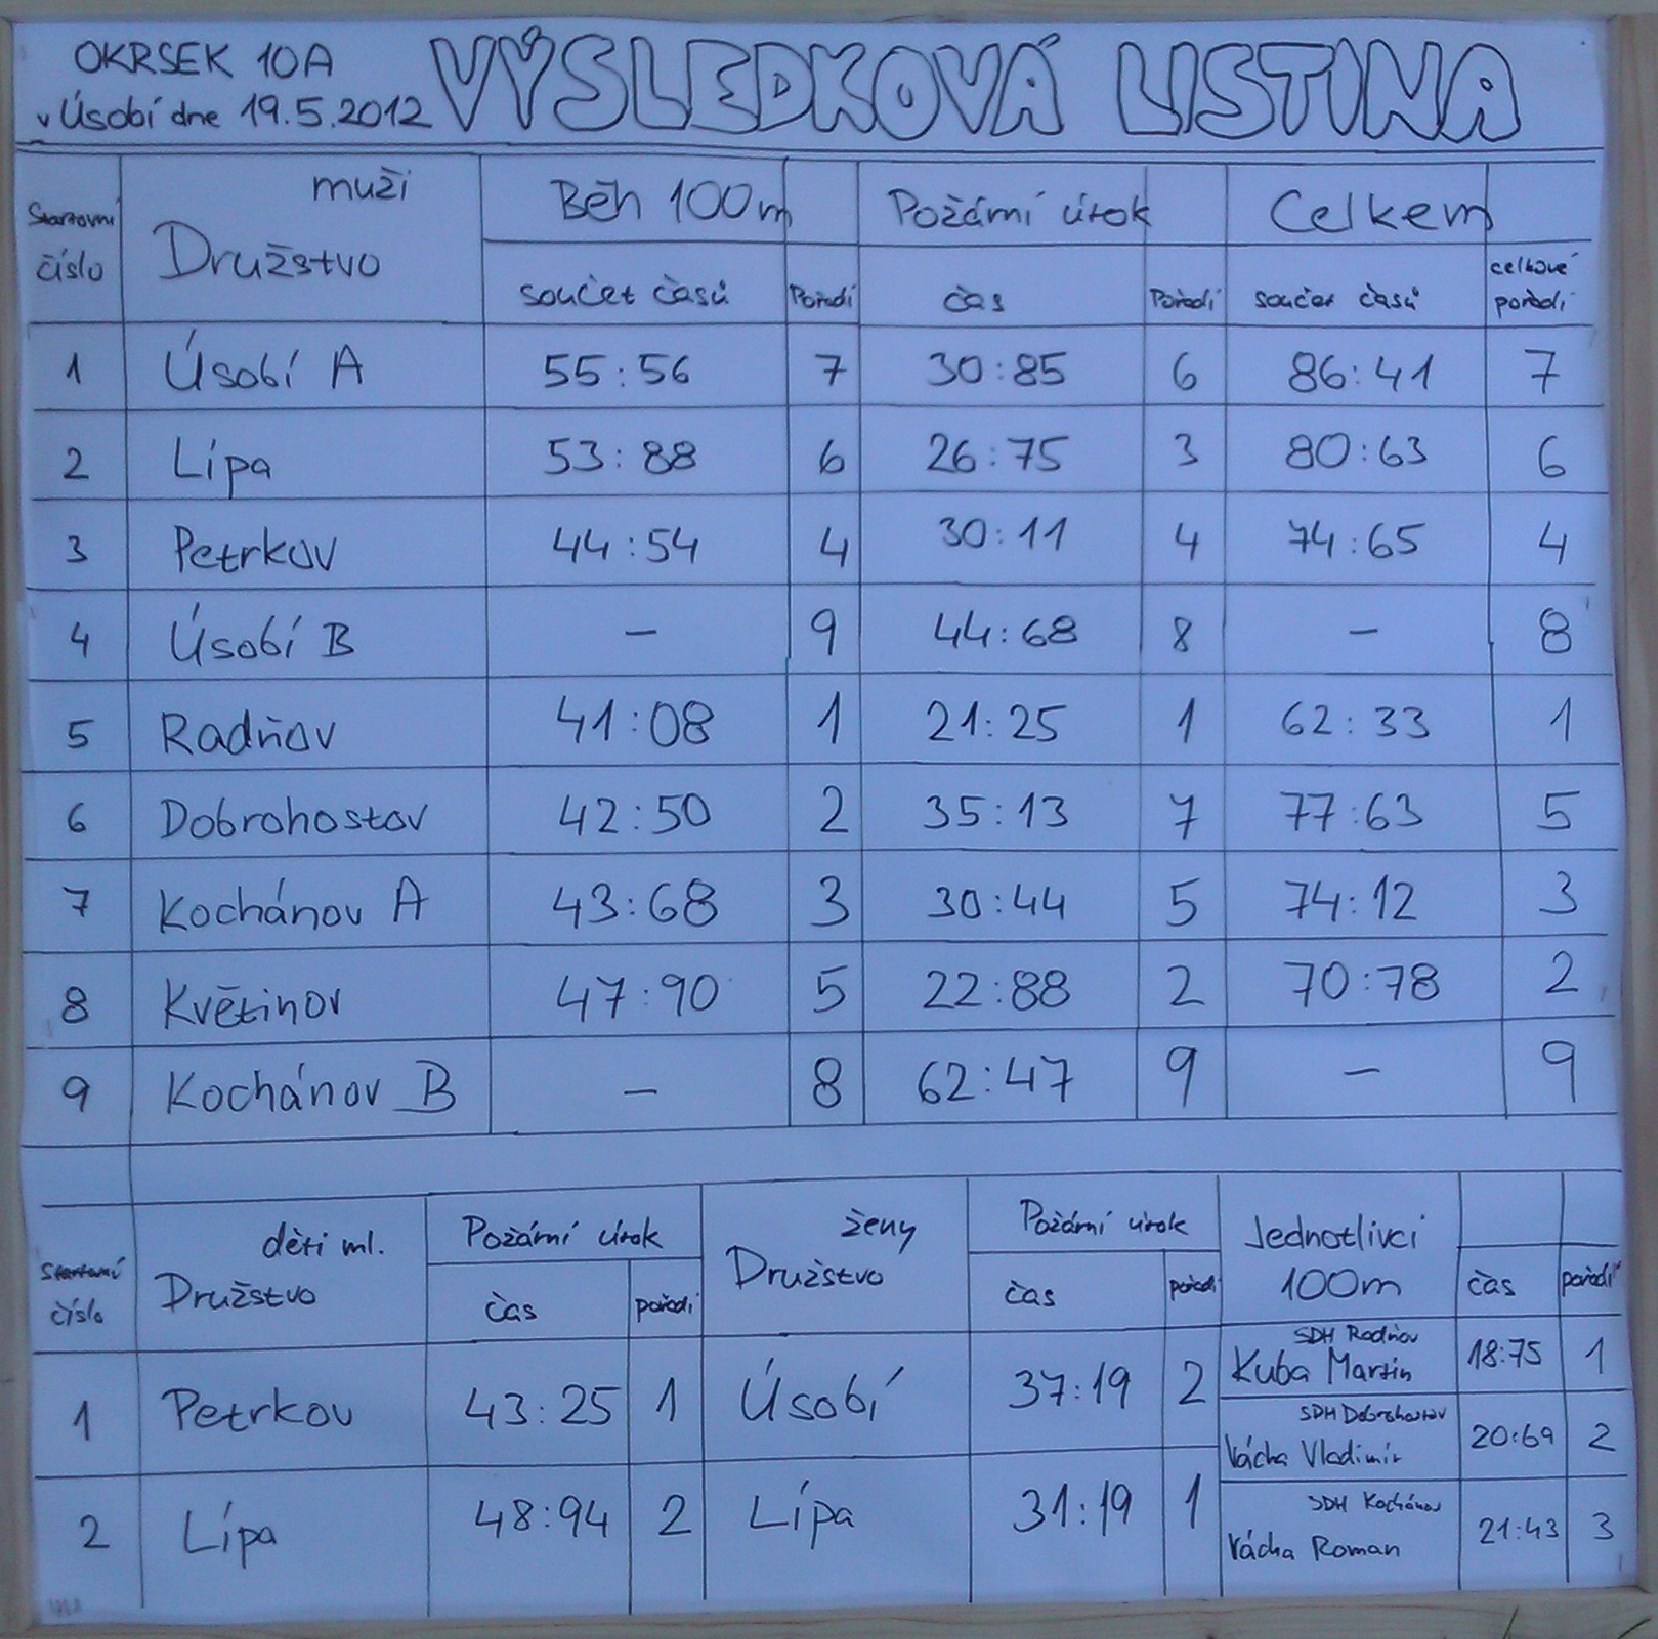 OKRSEK 10A VÝSLEDKOVÁ LISTINA
v Úsobí dne 19.5.2012
Startovní číslo muži Družstvo Běh 100m Požární útok Celkem
součet časů Pořadí čas Pořadí součet časů celkové pořadí
1 Úsobí A 55:56 7 30:85 6 86:41 7
2 Lípa 53:88 6 26:75 3 80:63 6
3 Petrkov 44:54 4 30:11 4 74:65 4
4 Úsobí B – 9 44:68 8 – 8
5 Radňov 41:08 1 21:25 1 62:33 1
6 Dobrohostov 42:50 2 35:13 7 77:63 5
7 Kochánov A 43:68 3 30:44 5 74:12 3
8 Květinov 47:90 5 22:88 2 70:78 2
9 Kochánov B – 8 62:47 9 – 9
Startovní číslo děti ml. Družstvo Požární útok ženy Družstvo Požární útok Jednotlivci 100m čas pořadí
čas pořadí čas pořadí
1 Petrkov 43:25 1 Úsobí 37:19 2
2 Lípa 48:94 2 Lípa 31:19 1
SDH Radňov
Kuba Martin 18:75 1
SDH Dobrohostov
Vácha Vladimír 20:69 2
SDH Kochánov
Vácha Roman 21:43 3